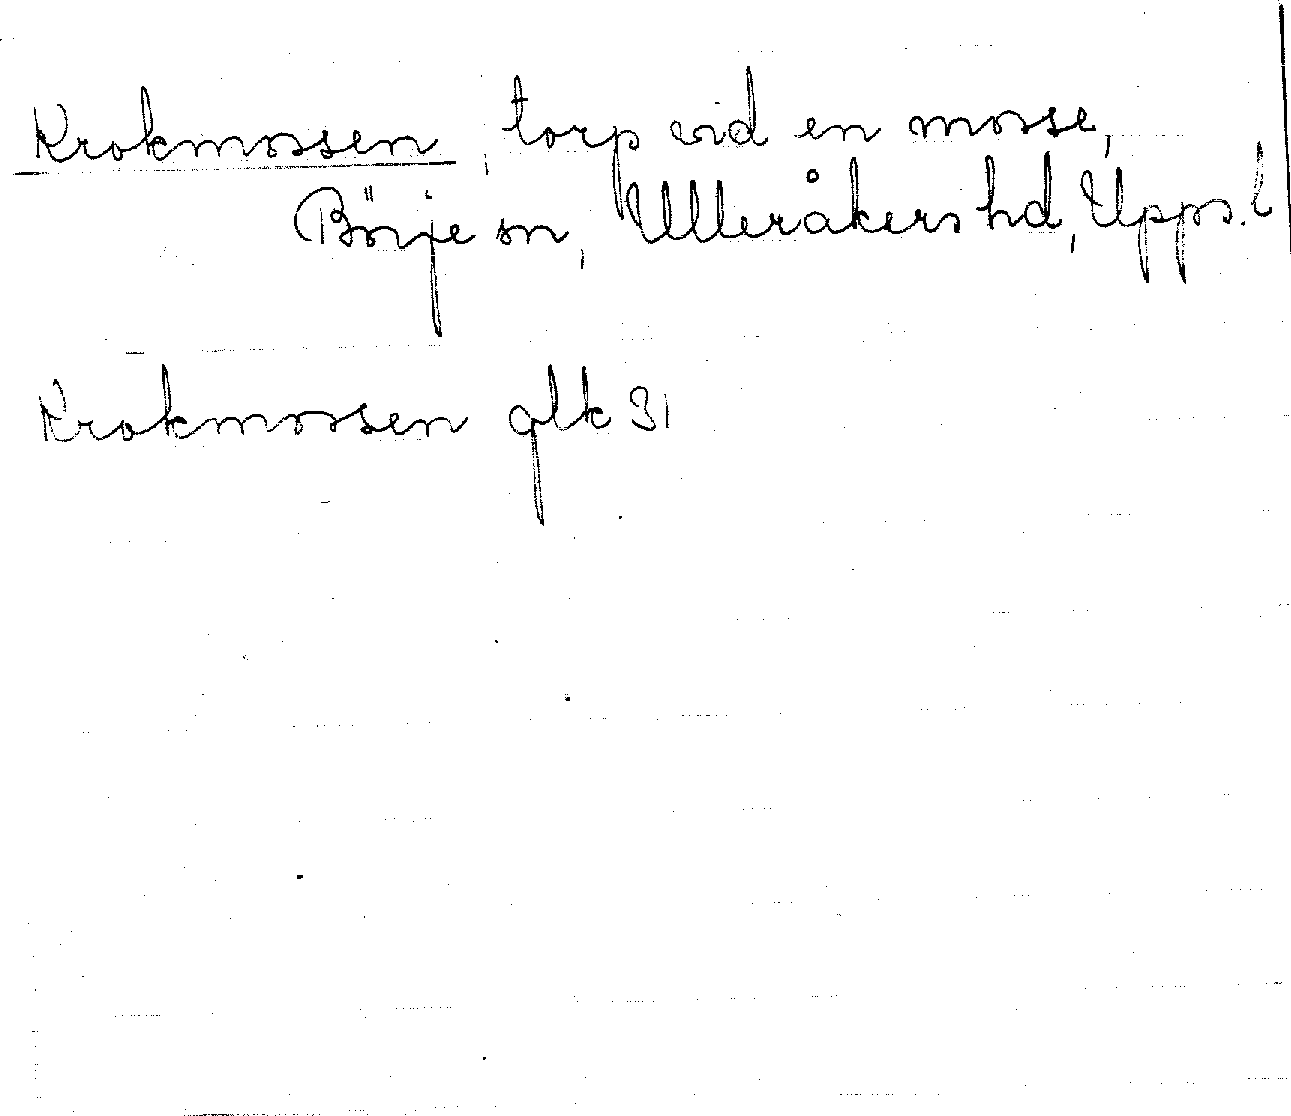 Krokmossen, torp vid en mosse,
Börje sn, Ulleråkers hd, Upps. l
Krokmossen glk 31